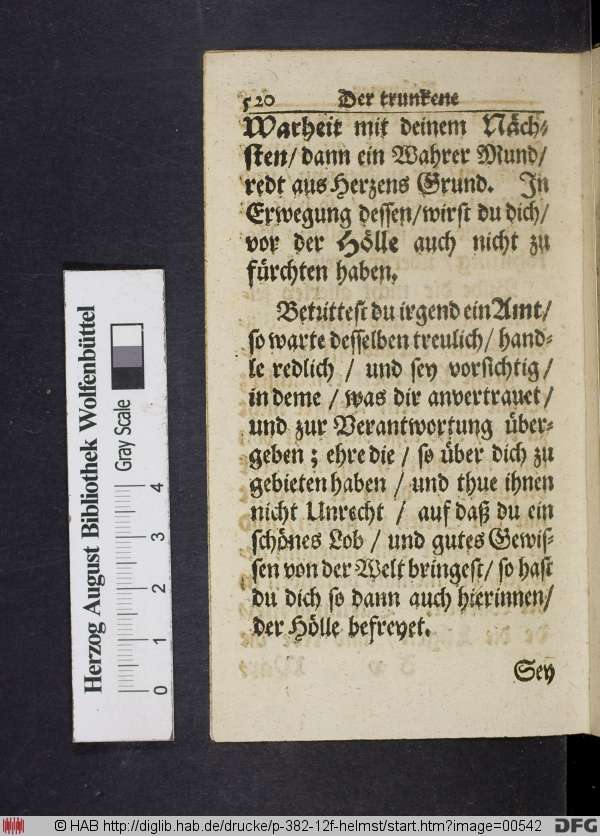 520 Der trunkene
Warheit mit deinem Näch-
sten/ dann ein Wahrer Mund/
redt aus Herzens Grund. In
Erwegung dessen/ wirst du dich/
vor der Hölle auch nicht zu
fürchten haben.
Betrittest du irgend ein Amt/
so warte desselben treulich/ hand-
le redlich / und sey vorsichtig/
in deme / was dir anvertrauet/
und zur Verantwortung über-
geben; ehre die / so über dich zu
gebieten haben / und thue ihnen
nicht Unrecht / auf daß du ein
schönes Lob / und gutes Gewis-
sen von der Welt bringest/ so hast
du dich so dann auch hierinnen/
der Hölle befreyet.
Sey
Herzog August Bibliothek Wolfenbüttel
Gray Scale
0 1 2 3 4
© HAB http://diglib.hab.de/drucke/p-382-12f-helmst/start.htm?image=00542
DFG